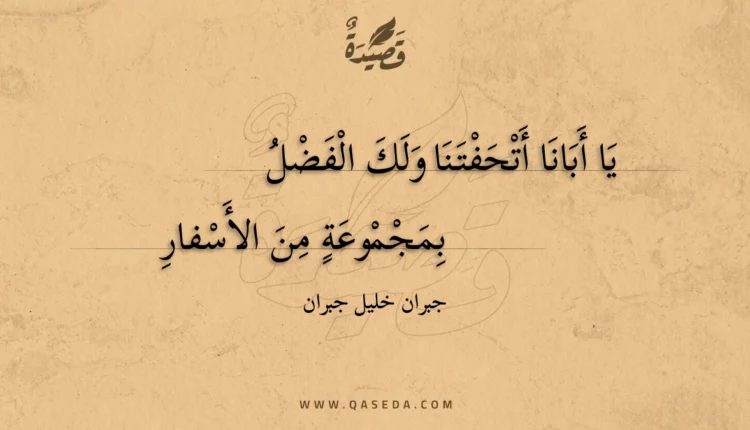 قَصِيْدَةٌ
يَا أَبَانَا أَتْحَفْتَنَا وَلَكَ الْفَضْلُ
بِمَجْمُوْعَةٍ مِنَ الأَسْفارِ
جبران خليل جبران
WWW.QASEDA.COM